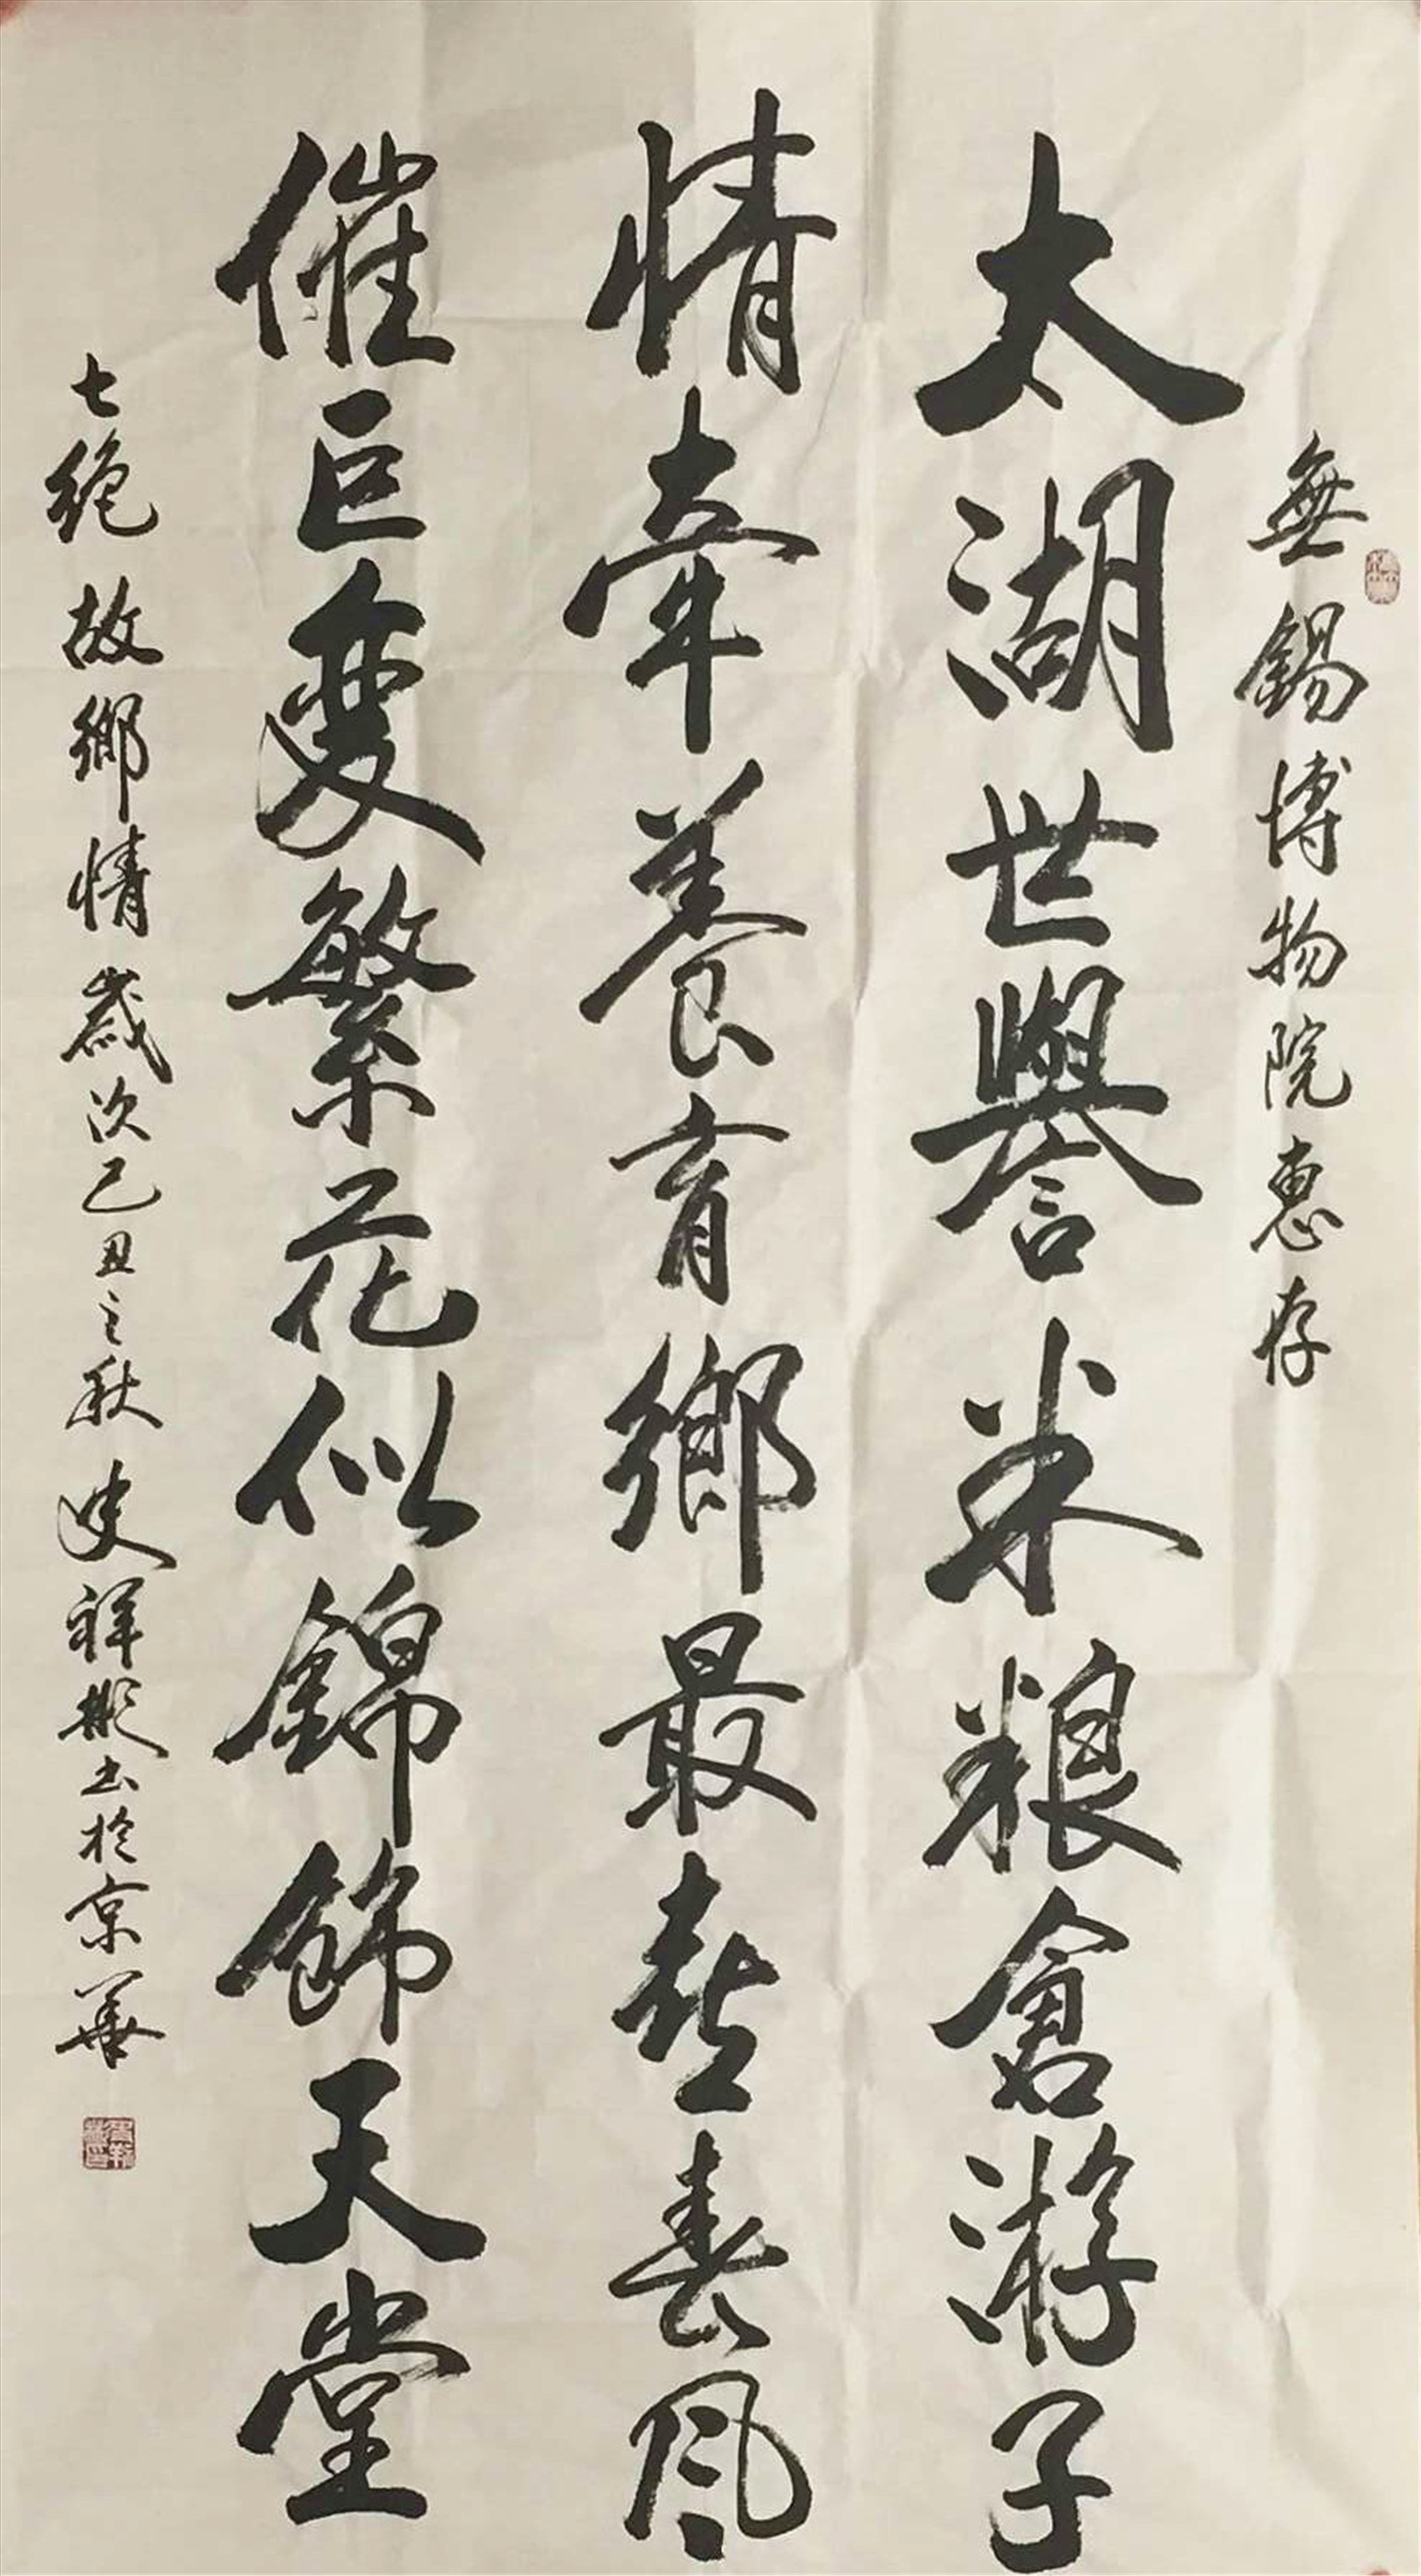 無錫博物院惠存
太湖世譽米粮倉游子
情牽養育鄉最喜春风
催巨变繁花似錦飾天堂
七绝 故鄉情 歲次己丑之秋 史祥彬書於京華